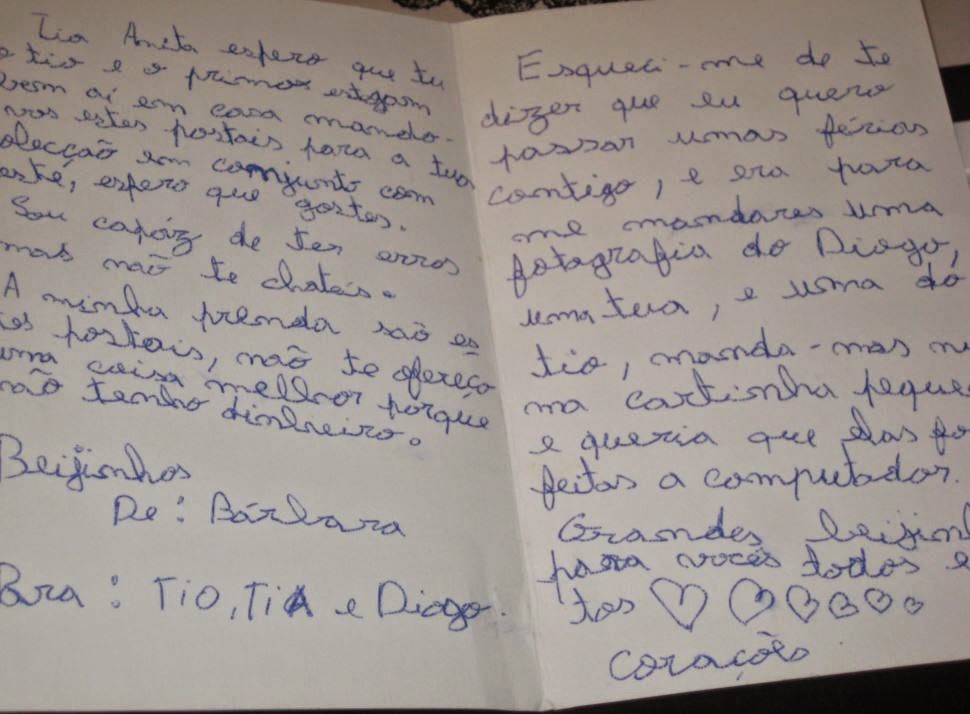 Tia Anita espero que tu
o tio e o primos estejam
bem aí em casa mando-
vos estes postais para a tua
olecção em comjunto com
este, espero que gostes.
Sou capáz de ter erros
mas não te chateis.
A minha prenda são es
tes postais, não te ofereço
uma coisa melhor porque
não tenho dinheiro.
Beijinhos
De: Bárbara
Para: TIO, TIA e Diogo.
Esqueci-me de te
dizer que eu quero
passar umas férias
contigo, e era para
me mandares uma
fotografia do Diogo,
uma tua, e uma do
tio, manda-mas nu
ma cartinha peque
e queria que elas fo
feitas a computador.
Grandes beijin
para vocês todos e
tos
corações